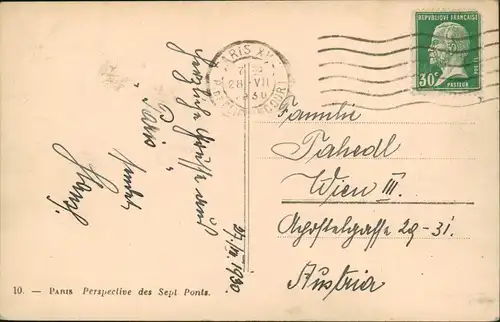 Herzliche Grüsse aus
Paris
sendet
27./VII. 1930.
PARIS XV
28 VII
REPUBLIQUE FRANÇAISE
30c
POSTES
PASTEUR
Familie
Tahedl
Wien III.
29-31.
Austria
10. — PARIS Perspective des Sept Ponts.